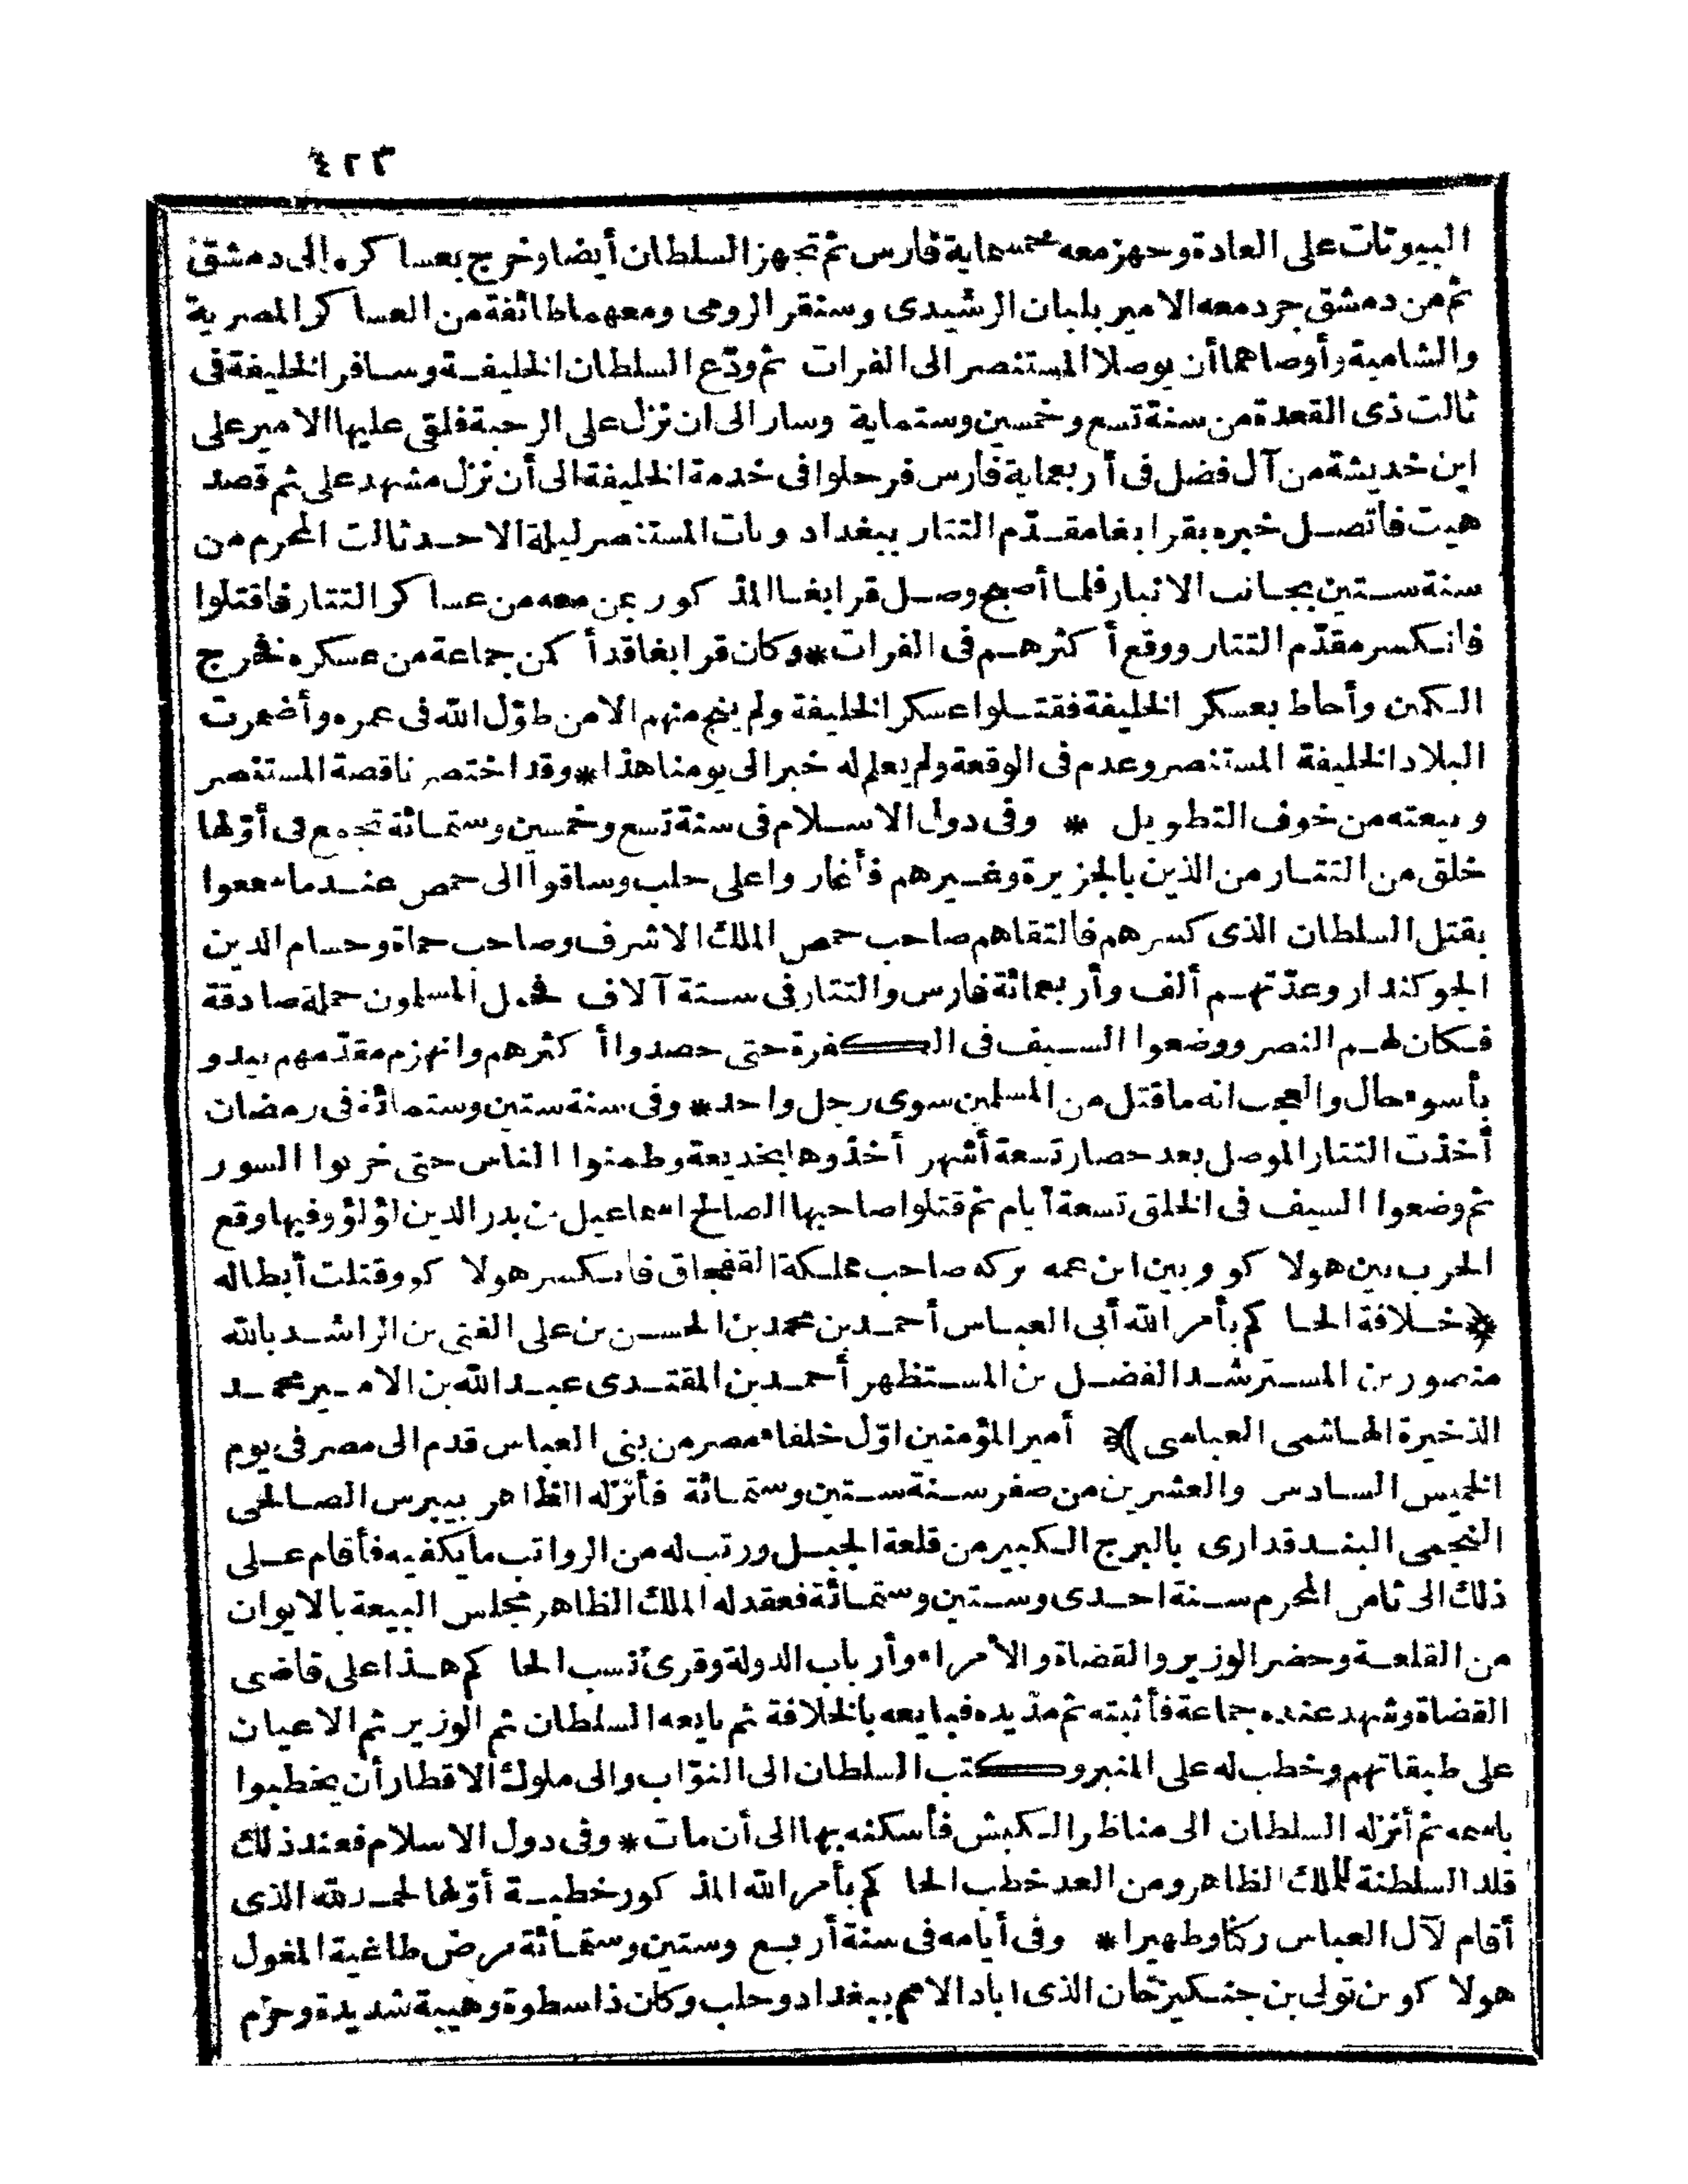 ٤٢٣
البيوتات على العادة وجهز معه خمسماية فارس ثم تجهز السلطان أيضا وخرج بعساكره إلى دمشق
ثم من دمشق جرد معه الامير بلبان الرشيدى وسنقر الرومى ومعهما طائفة من العساكر المصرية
والشامية وأوصاهما أن يوصلا المستنصر الى الفرات ثم ودّع السلطان الخليفة وسافر الخليفة فى
ثالث ذى القعدة من سنة تسع وخمسين وستماية وسار الى ان نزل على الرحبة فلقى عليها الامير على
ابن خديشة من آل فضل فى أربعماية فارس فرحلوا فى خدمة الخليفة الى أن نزل مشهد على ثم قصد
هيت فاتصل خبره بقرابغا مقدّم التتار ببغداد وبات المستنصر ليلة الاحد ثالث المحرم من
سنة ستين بجانب الانبار فلما أصبح وصل قرابغا المذكور بمن معه من عساكر التتار فاقتلوا
فانكسر مقدّم التتار ووقع أكثرهم فى الفرات * وكان قرابغا قد أكمن جماعة من عسكره فخرج
الكمين وأحاط بعسكر الخليفة فقتلوا عسكر الخليفة ولم ينج منهم الا من طوّل الله فى عمره وأضمرت
البلاد الخليفة المستنصر وعدم فى الوقعة ولم يعلم له خبر الى يومنا هذا * وقد اختصرنا قصة المستنصر
وبيعته من خوف التطويل * وفى دول الاسلام فى سنة تسع وخمسين وستمائة تجمع فى أوّلها
خلق من التتار من الذين بالجزيرة وغيرهم فأغاروا على حلب وساقوا الى حمص عندما سمعوا
بقتل السلطان الذى كسرهم فالتقاهم صاحب حمص الملك الاشرف وصاحب حماة وحسام الدين
الجوكندار وعدّتهم ألف وأربعمائة فارس والتتار فى ستة آلاف فحمل المسلمون حملة صادقة
فكان لهم النصر ووضعوا السيف فى الكفرة حتى حصدوا أكثرهم وانهزم مقدّمهم بيدو
بأسوء حال والعجب انه ما قتل من المسلمين سوى رجل واحد * وفى سنة ستين وستمائة فى رمضان
أخذت التتار الموصل بعد حصار تسعة أشهر أخذوها بخديعة وطمنوا الناس حتى خربوا السور
ثم وضعوا السيف فى الخلق تسعة أيام ثم قتلوا صاحبها الصالح اسماعيل بن بدر الدين لؤلؤ وفيها وقع
الحرب بين هولاكو وبين ابن عمه بركه صاحب مملكة القفجاق فانكسر هولاكو وقتلت أبطاله
﴿خلافة الحاكم بأمر الله أبى العباس أحمد بن محمد بن الحسن بن على الغنى بن الراشد بالله
منصور بن المسترشد الفضل بن المستظهر أحمد بن المقتدى عبد الله بن الامير محمد
الذخيرة الهاشمى العباسى﴾ أمير المؤمنين اوّل خلفاء مصر من بنى العباس قدم الى مصر فى يوم
الخميس السادس والعشرين من صفر سنة ستين وستمائة فأنزله الظاهر بيبرس الصالحى
النجمى البندقدارى بالبرج الكبير من قلعة الجبل ورتب له من الرواتب ما يكفيه فأقام على
ذلك الى ثامن المحرم سنة احدى وستين وستمائة فعقد له الملك الظاهر مجلس البيعة بالايوان
من القلعة وحضر الوزير والقضاة والأمراء وأرباب الدولة وقرئ نسب الحاكم هذا على قاضى
القضاة وشهد عنده جماعة فأثبته ثم مدّ يده فبايعه بالخلافة ثم بايعه السلطان ثم الوزير ثم الاعيان
على طبقاتهم وخطب له على المنبر وكتب السلطان الى النوّاب والى ملوك الاقطار أن يخطبوا
باسمه ثم أنزله السلطان الى مناظر الكبش فأسكنه بها الى أن مات * وفى دول الاسلام فعند ذلك
قلد السلطنة للملك الظاهر ومن الغد خطب الحاكم بأمر الله المذكور خطبة أوّلها الحمد لله الذى
أقام لآل العباس ركنا وظهيرا * وفى أيامه فى سنة أربع وستين وستمائة مرض طاغية المغول
هولاكو بن تولى بن جنكيزخان الذى اباد الامم ببغداد وحلب وكان ذا سطوة وهيبة شديدة وحزم